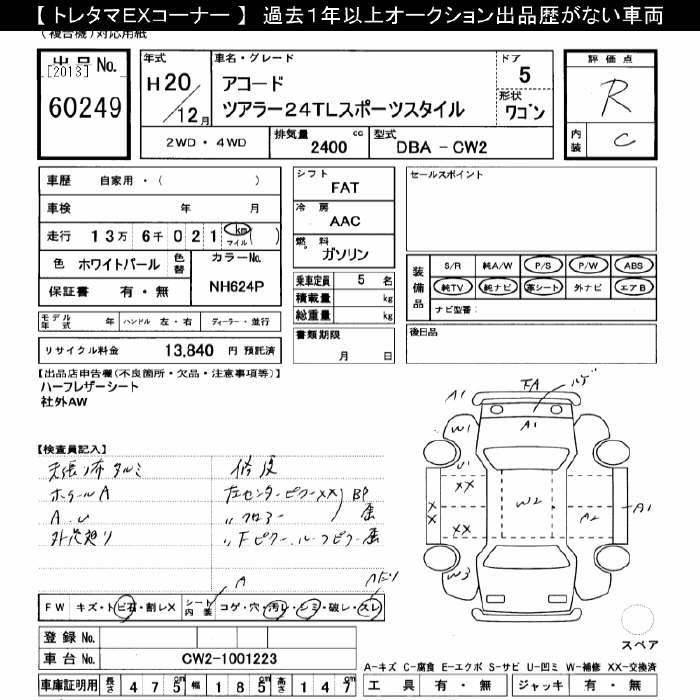 【 トレタマEXコーナー 】 過去１年以上オークション出品歴がない車両
（複合機）対応用紙
出品 No.
[2013]
60249
年式
H 20
12 月
車名・グレード
アコード
ツアラー24TLスポーツスタイル
ドア
5
形状
ワゴン
2WD ・ 4WD
排気量
2400 cc
型式
DBA - CW2
評価点
R
内装
C
車歴 自家用・( )
車検 年 月
走行 13万 6千 0 2 1 km マイル ( )
色 ホワイトパール
色替
カラーNo.
NH624P
保証書 有・無
モデル年式 年 ハンドル 左・右 ディーラー・並行
リサイクル料金 13,840 円 預託済
シフト
FAT
冷房
AAC
燃料
ガソリン
乗車定員 5 名
積載量 kg
総重量 kg
書類期限
月 日
セールスポイント
装備品
S/R 純A/W P/S P/W ABS
純TV 純ナビ 革シート 外ナビ エアB
ナビ型番：
後日品
【出品店申告欄(不良箇所・欠品・注意事項等)】
ハーフレザーシート
社外AW
【検査員記入】
天張り布タルミ
ホイールA
A.U
修復
左センターピラーXX
BP
〃フロアー
歪
〃Fピラー.ルーフピラー歪
FA
A1
A1
W1
U1
XX
XX
XX
W2
A2
A1
W3
FW キズ・トビ石・割レX
シート内装 コゲ・穴・汚レ・シミ・破レ・スレ
A
スペア
登録 No.
車台 No. CW2-1001223
車庫証明用 長さ 475 cm 幅 185 cm 高さ 147 cm
A-キズ C-腐食 E-エクボ S-サビ U-凹ミ W-補修 XX-交換済
工具 有・無 ジャッキ 有・無